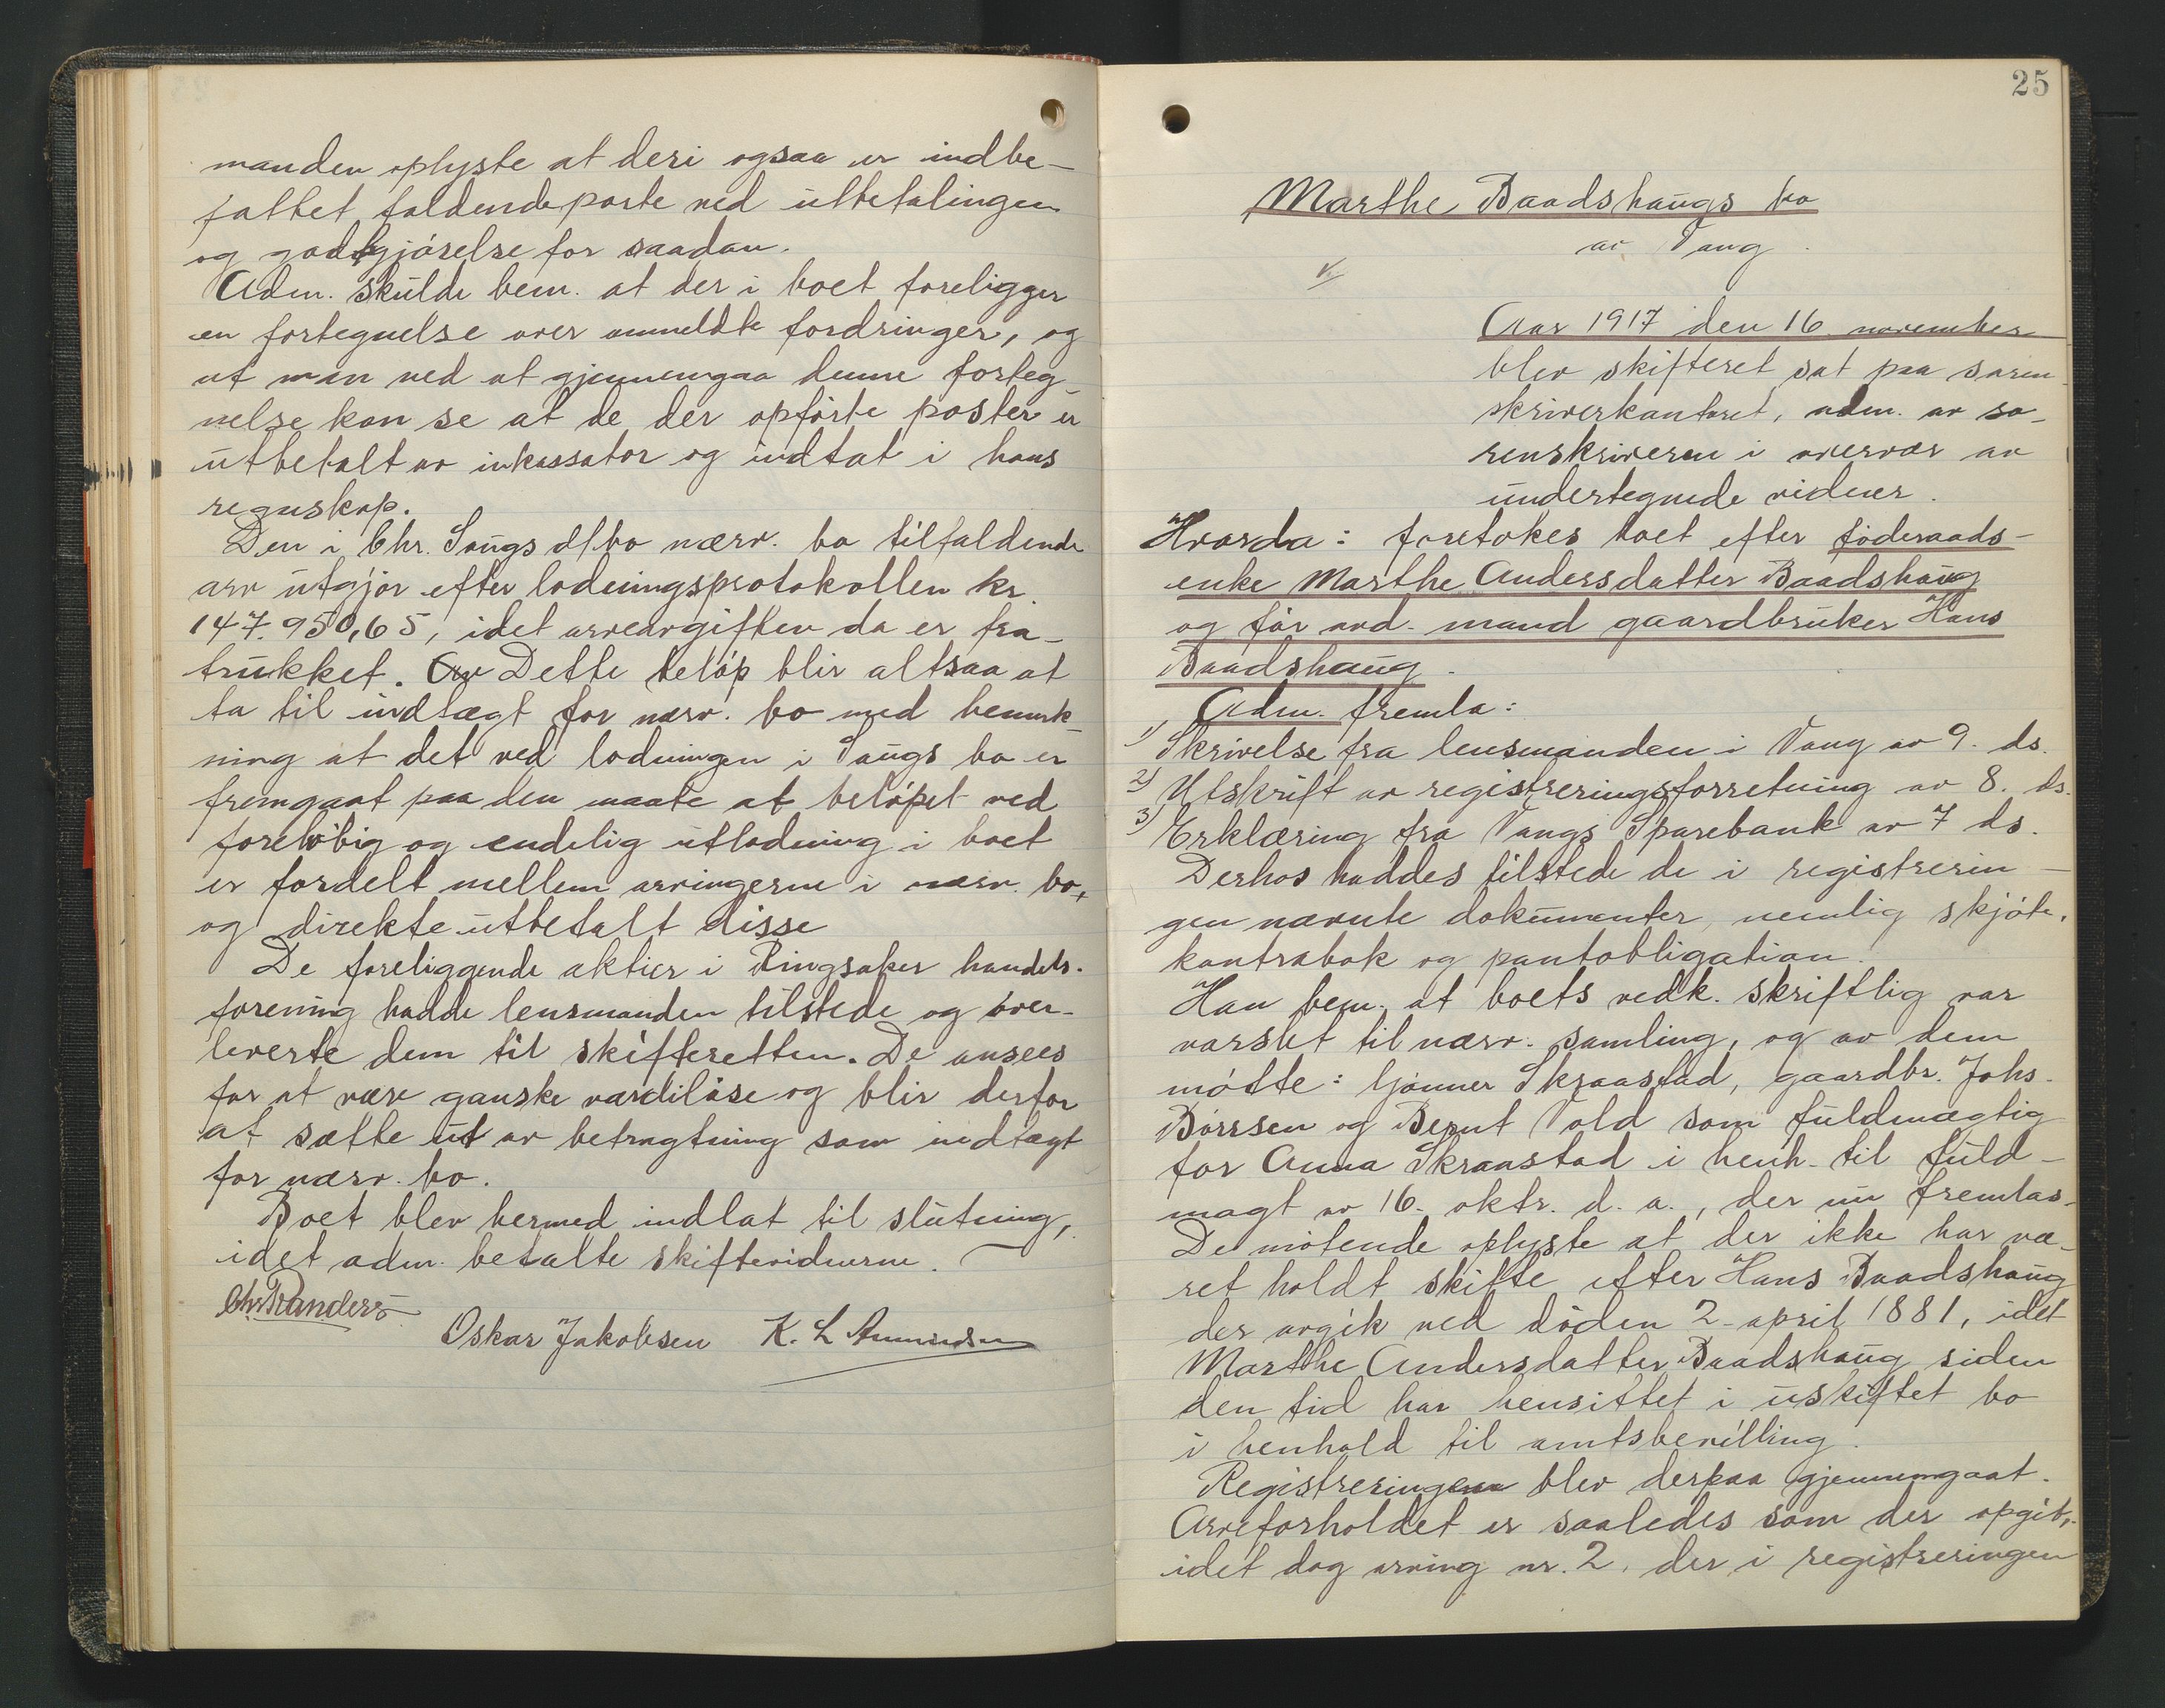 manden oplyste at deri ogsaa er indbe-
fattet faldendeparte ved utbetalingen
og godtgjørelse for saadan.
Adm. skulde bem. at der i boet foreligger
en fortegnelse over anmeldte fordringer, og
at man ved at gjennemgaa denne forteg-
nelse kan se at de der opførte poster er
utbetalt av inkassator og indtat i hans
regnskap.
Den i Chr. Saugs d/bo nærv. bo tilfaldende
arv utgjør efter lodningsprotokollen kr.
147.950,65, idet arveavgiften da er fra-
trukket. Dette beløp blir altsaa at
ta til indtægt for nærv. bo med bemerk-
ning at det ved lodningen i Saugs bo er
fremgaat paa den maate at beløpet ved
foreløbig og endelig utlodning i boet
er fordelt mellem arvingerne i nærv. bo,
og direkte utbetalt disse
De foreliggende aktier i Ringsaker handels-
forening hadde lensmanden tilstede og over-
leverte dem til skifteretten. De ansees
for at være ganske værdiløse og blir derfor
at sætte ut av betragtning som indtægt
for nærv. bo.
Boet blev hermed indlat til slutning,
idet adm. betalte skiftevidnerne.
Chr Randers
Oskar Jakobsen K. L Amundsen
25
Marthe Baadshaugs bo
av Vang.
Aar 1917 den 16. november
blev skifteret sat paa soren-
skriverkontoret, adm. av so-
renskriveren i overvær av
undertegnede vidner.
Hvorda: foretokes boet efter føderaads-
enke Marthe Andersdatter Baadshaug
og før avd. mand gaardbruker Hans
Baadshaug.
Adm. fremla:
1) Skrivelse fra lensmanden i Vang av 9. ds.
2) Utskrift av registreringsforretning av 8. ds.
3) Erklæring fra Vangs Sparebank av 7 ds.
Derhos haddes tilstede de i registrerin-
gen nævnte dokumenter, nemlig skjøte,
kontrabok og pantobligation.
Han bem. at boets vedk. skriftlig var
varslet til nærv. samling, og av dem
møtte: Gunner Skraastad, gaardbr. Johs.
Børrsen og Bernt Vold som fuldmægtig
for Anna Skraastad i henh. til fuld-
magt av 16. oktr. d. a., der nu fremlas.
De møtende oplyste at der ikke har væ-
ret holdt skifte efter Hans Baadshaug
der avgik ved døden 2. april 1881, idet
Marthe Andersdatter Baadshaug siden
den tid har hensittet i uskiftet bo
i henhold til amtsbevilling.
Registreringen blev derpaa gjennemgaat.
Arveforholdet er saaledes som der opgit,
idet dog arving nr. 2, der i registreringen